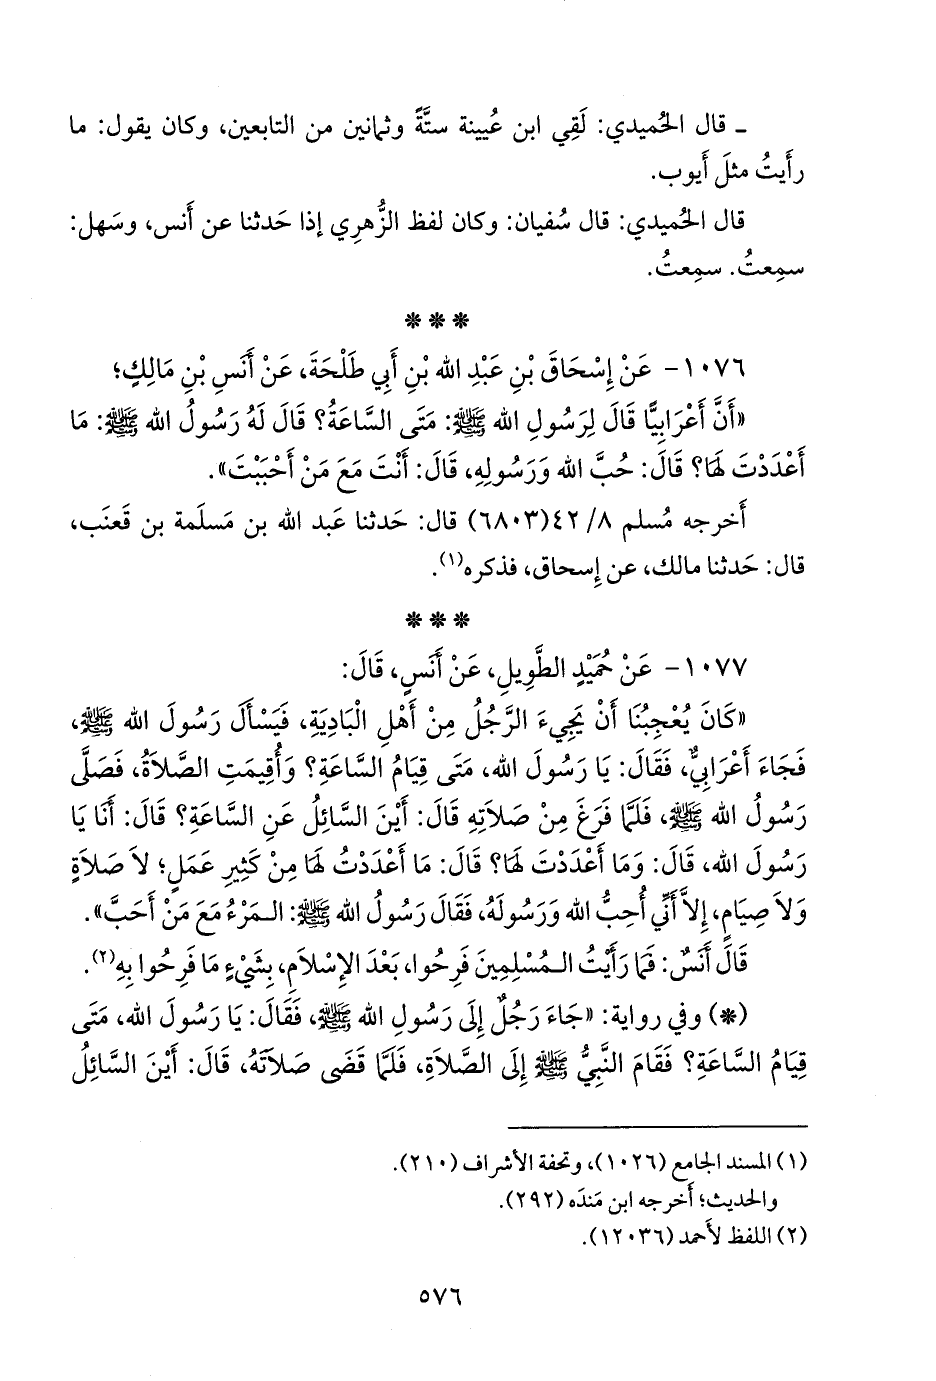 ـ قال الحُميدي: لَقِي ابن عُيينة ستَّةً وثمانين من التابعين، وكان يقول: ما
رأَيتُ مثلَ أَيوب.
قال الحُميدي: قال سُفيان: وكان لفظ الزُّهرِي إذا حَدثنا عن أَنس، وسَهل:
سمِعتُ. سمِعتُ.
* * *
١٠٧٦- عَنْ إِسْحَاقَ بْنِ عَبْدِ الله بْنِ أَبِي طَلْحَةَ، عَنْ أَنَسِ بْنِ مَالِكٍ؛
«أَنَّ أَعْرَابِيًّا قَالَ لِرَسُولِ الله ﷺ: مَتَى السَّاعَةُ؟ قَالَ لَهُ رَسُولُ الله ﷺ: مَا
أَعْدَدْتَ لَهَا؟ قَالَ: حُبَّ الله وَرَسُولِهِ، قَالَ: أَنْتَ مَعَ مَنْ أَحْبَبْتَ».
أَخرجه مُسلم ٨/ ٤٢(٦٨٠٣) قال: حَدثنا عَبد الله بن مَسلَمة بن قَعنَب،
قال: حَدثنا مالك، عن إِسحاق، فذكره(١).
* * *
١٠٧٧- عَنْ حُمَيْدٍ الطَّوِيلِ، عَنْ أَنَسٍ، قَالَ:
«كَانَ يُعْجِبُنَا أَنْ يَجِيءَ الرَّجُلُ مِنْ أَهْلِ الْبَادِيَةِ، فَيَسْأَلَ رَسُولَ الله ﷺ،
فَجَاءَ أَعْرَابِيٌّ، فَقَالَ: يَا رَسُولَ الله، مَتَى قِيَامُ السَّاعَةِ؟ وَأُقِيمَتِ الصَّلاَةُ، فَصَلَّى
رَسُولُ الله ﷺ، فَلَمَّا فَرَغَ مِنْ صَلاَتِهِ قَالَ: أَيْنَ السَّائِلُ عَنِ السَّاعَةِ؟ قَالَ: أَنَا يَا
رَسُولَ الله، قَالَ: وَمَا أَعْدَدْتَ لَهَا؟ قَالَ: مَا أَعْدَدْتُ لَهَا مِنْ كَثِيرِ عَمَلٍ؛ لاَ صَلاَةٍ
وَلاَ صِيَامٍ، إِلاَّ أَنِّي أُحِبُّ الله وَرَسُولَهُ، فَقَالَ رَسُولُ الله ﷺ: الـمَرْءُ مَعَ مَنْ أَحَبَّ».
قَالَ أَنَسٌ: فَمَا رَأَيْتُ الـمُسْلِمِينَ فَرِحُوا، بَعْدَ الإِسْلاَمِ، بِشَيْءٍ مَا فَرِحُوا بِهِ(٢).
(*) وفي رواية: «جَاءَ رَجُلٌ إِلَى رَسُولِ الله ﷺ، فَقَالَ: يَا رَسُولَ الله، مَتَى
قِيَامُ السَّاعَةِ؟ فَقَامَ النَّبِيُّ ﷺ إِلَى الصَّلاَةِ، فَلَمَّا قَضَى صَلاَتَهُ، قَالَ: أَيْنَ السَّائِلُ
(١) المسند الجامع (١٠٢٦)، وتحفة الأشراف (٢١٠).
والحديث؛ أَخرجه ابن مَندَه (٢٩٢).
(٢) اللفظ لأَحمد (١٢٠٣٦).
٥٧٦